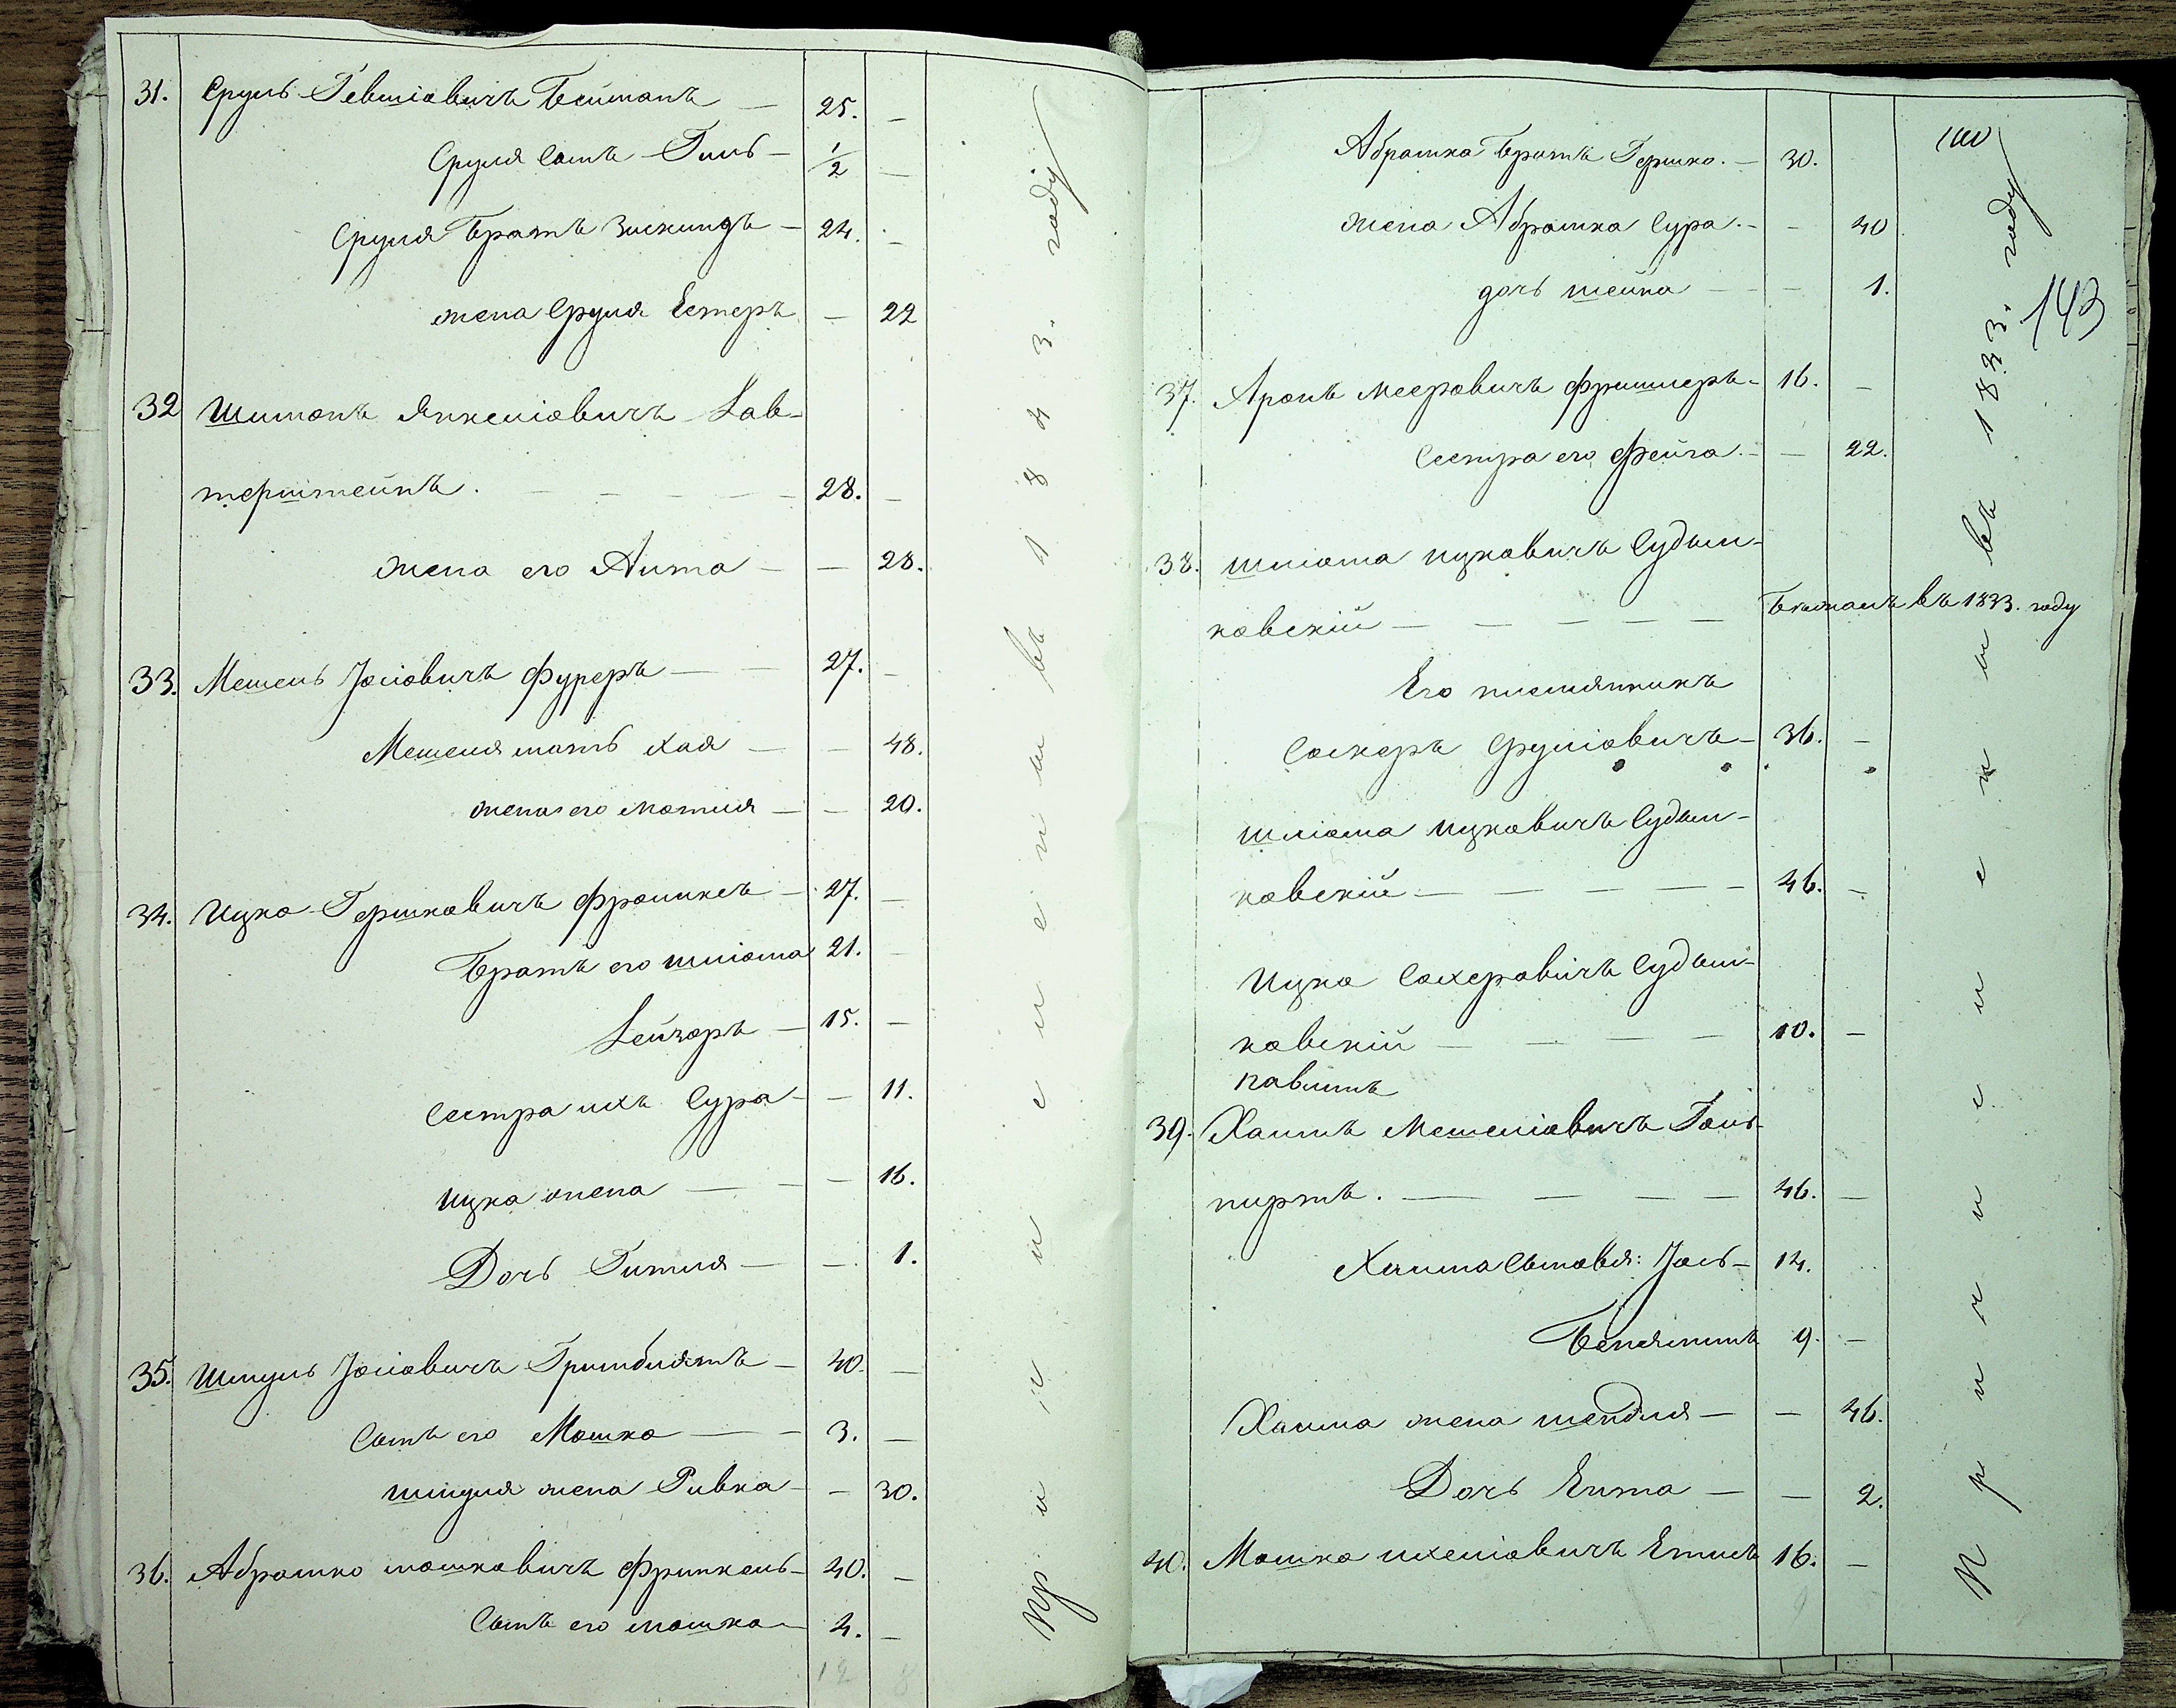 31. Сруль Гевшіовичъ Бейманъ — 25. —
Сруля Сынъ Гиль — 1/2 —
Сруля Братъ Зискиндъ — 24. —
жена Сруля Естеръ — 22
32 Шимонъ Янкеліовичъ Лав-
терштейнъ. — — — — — 28. —
жена его Анта — — 28.
33. Мешель Іосіовичъ Фуреръ — — 27. —
Мешеля мать Хая — — 48.
жена его Мотля — — 20.
34. Ицко Гершковичъ — 27. —
Братъ его Шліома 21. —
Лейзоръ — 15. —
Сестра ихъ Сура — — 11.
Ицка жена — — — 16.
Дочь Гитля — — 1.
35. Шмуль Іосіовичъ Гринблятъ — 40. —
Сынъ его Мошко — — 3. —
Шмуля жена Ривка — — 30.
36. Абрамко Мошковичъ Френкель — 40. —
Сынъ его Мошко — 4. —
12 8
Причислены въ 1843. году
Абрамка Братъ Гершко. — 30.
жена Абрамка Сура. — — 40
дочь Шейка — — 1.
37. Аронъ Мееровичъ Фришлеръ — 16. —
Сестра его Фейга. — — 22.
38. Шліома Ицковичъ Судын-
ковскій — — — — — Бѣжалъ въ 1833. году
Его племянникъ
Сохеръ Сруліовичъ — 36. —
Шліома Ицковичъ Судын-
ковскій — — — — — 46. —
Ицко Сохеровичъ Судын-
ковскій — — — — 10. —
39. Хаимъ Мешеліовичъ Голь-
пертъ. — — — — 46. —
Хаима Сыновья: Іось — 14.
Беняминъ 9. —
Хаима жена Шендля — — 46.
Дочь Ента — — 2.
40. Мошко Ихеліовичъ 16. —
Причислены въ 1833. году
143